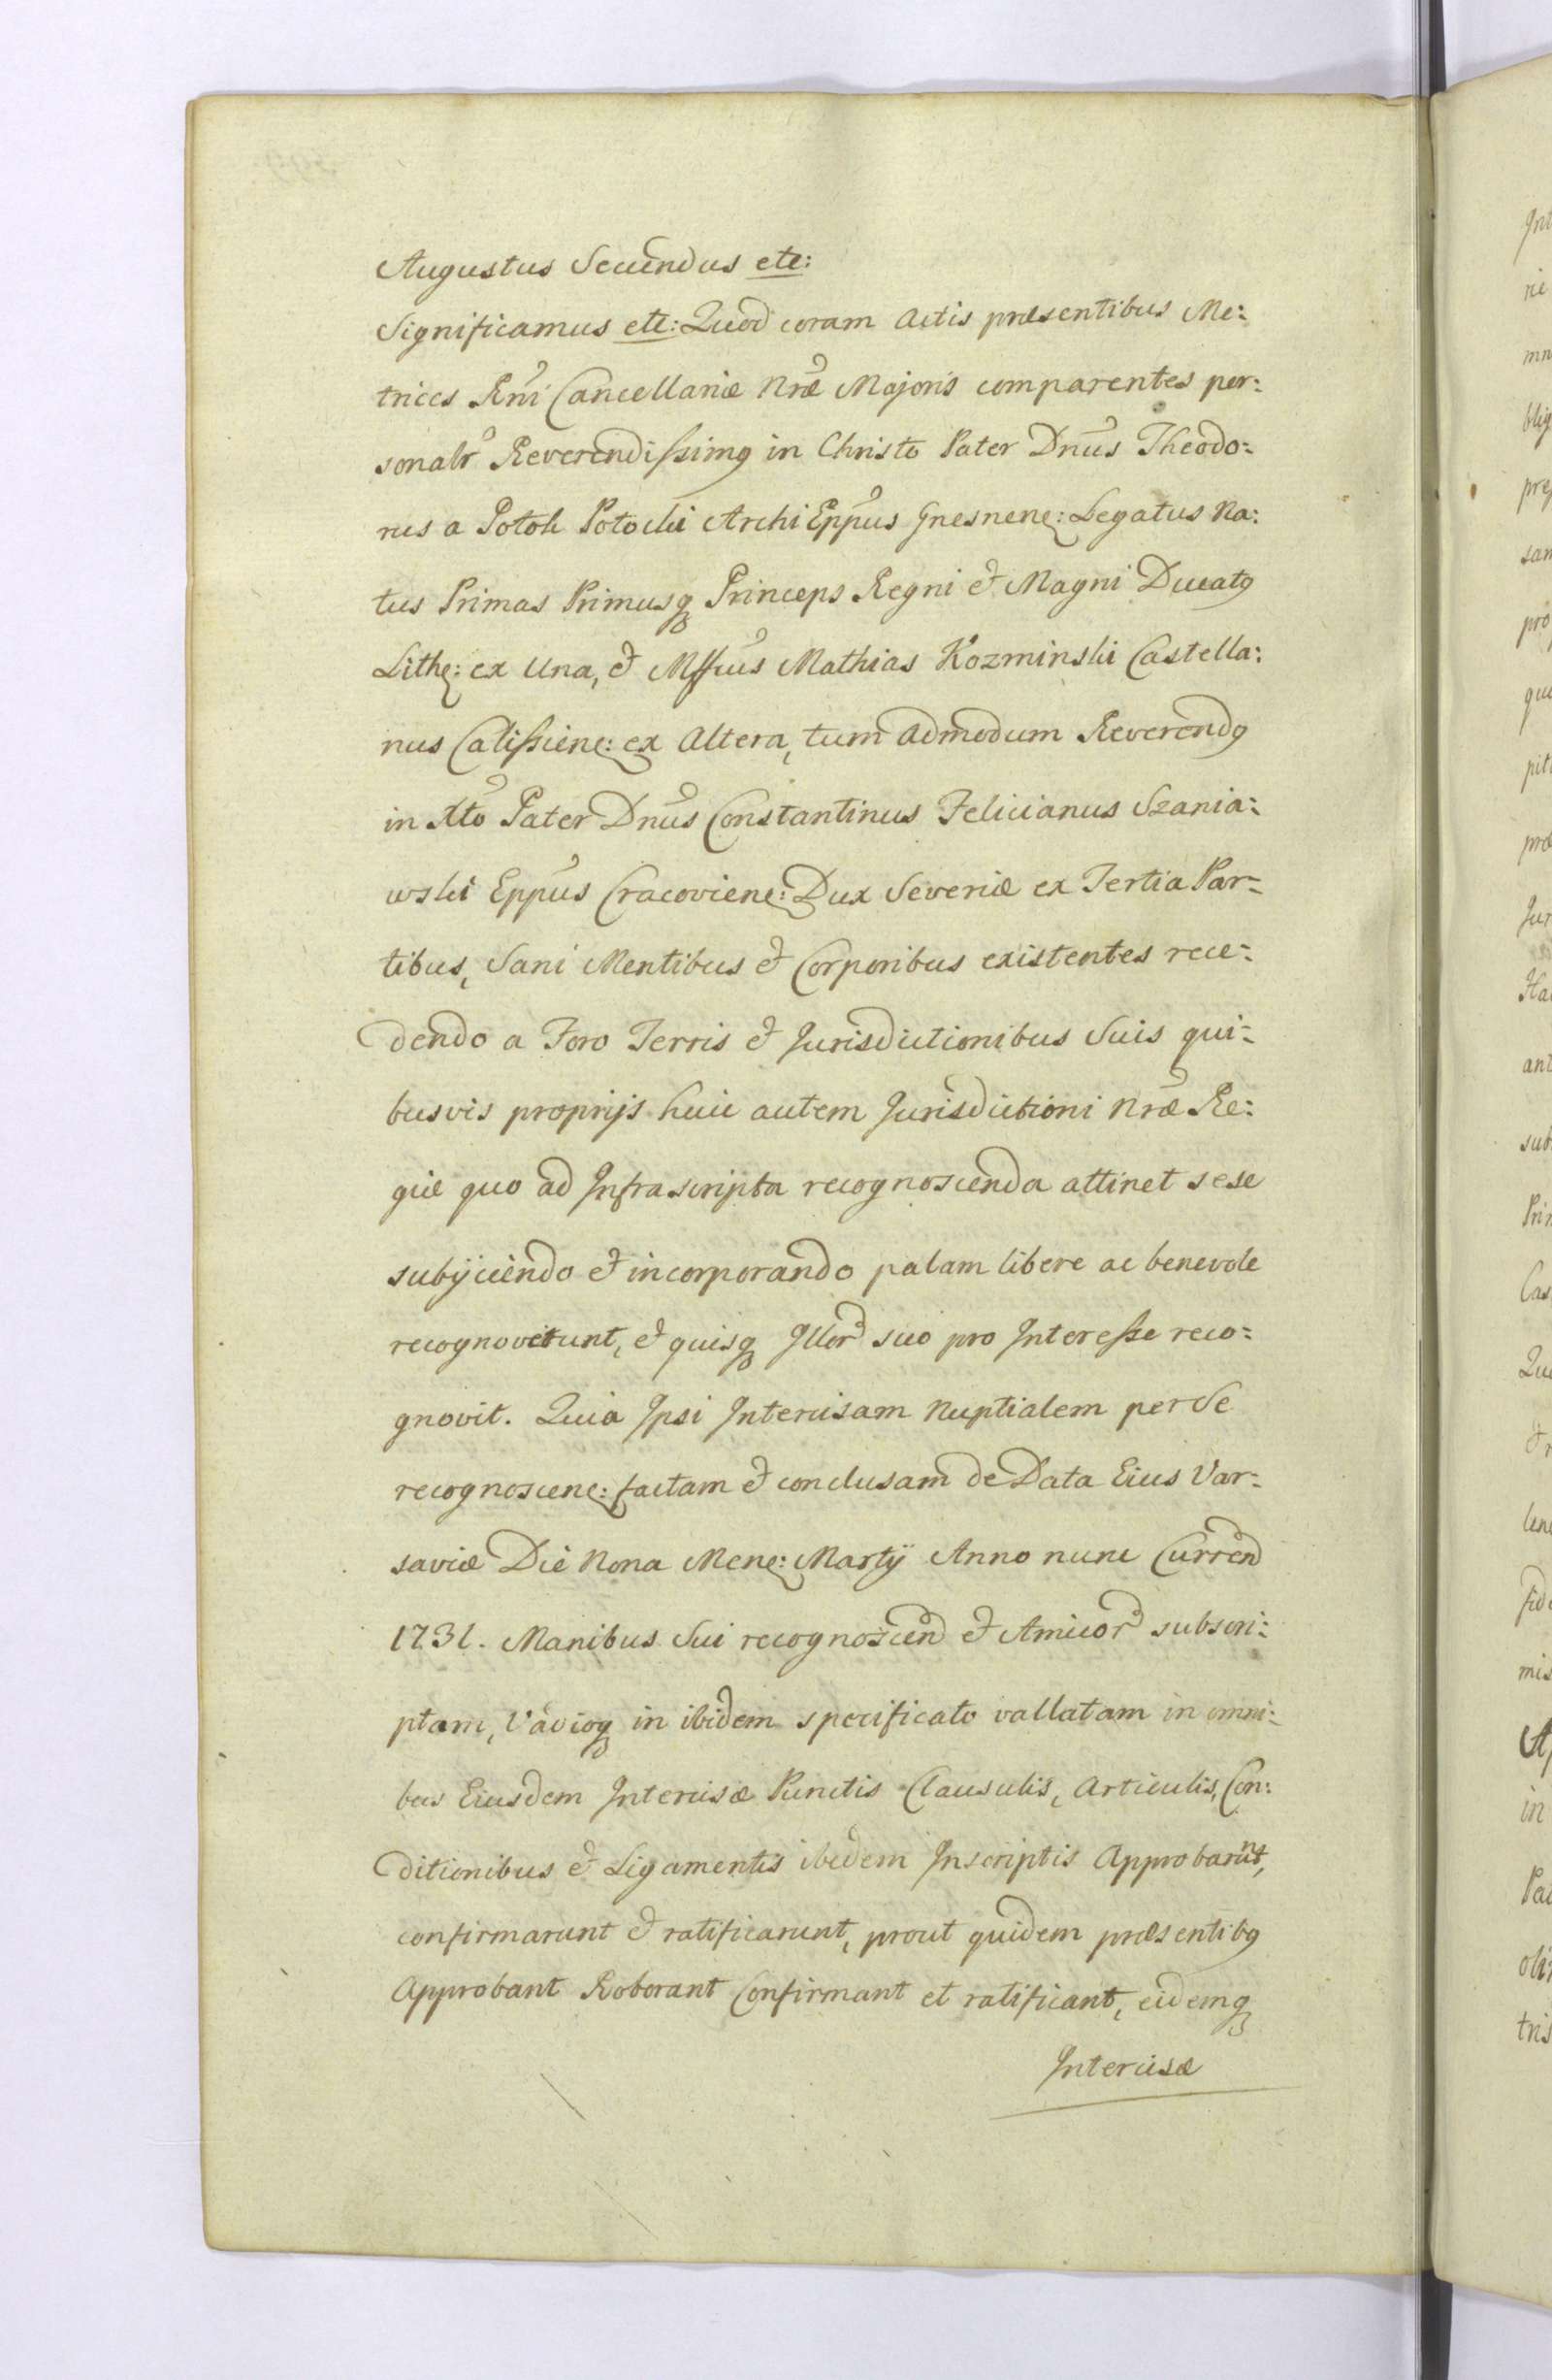 Augustus Secundus etc:
Significamus etc: Quod coram Actis præsentibus Me:
trices Rñi Cancellariæ Nræ Majoris comparentes per:
sonalr Reverendissimꝯ in Christo Pater Dnus Theodo:
rus a Potok Potocki Archi Eppus Gnesnene: Legatus Na:
tus Primas Primusqꝫ Princeps Regni et Magni Ducatꝯ
Lithe: ex Una, et Mffcus Mathias Kozminski Castella:
nus Calissiene: ex Altera, tum Admodum Reverendꝯ
in Xto Pater Dnus Constantinus Felicianus Szania:
wski Eppus Cracoviene: Dux Severiæ ex Tertia Par:
tibus, Sani Mentibus et Corporibus existentes rece:
dendo a Foro Terris et Jurisdictionibus Suis qui:
busvis proprijs huic autem Jurisdictioni Nræ Re:
giæ quo ad Infrascripta recognoscenda attinet sese
subijciendo et incorporando palam libere ac benevole
recognoverunt, et quisqꝫ Illor suo pro Interesse reco:
gnovit. Quia Ipsi Intercisam Nuptialem per Se
recognoscene: factam et conclusam de Data Eius Var:
saviæ Die Nona Mene: Martij Anno nunc Curren
1731. Manibus Sui recognoscen et Amicor subscri:
ptam, Vadioqꝫ in ibidem specificato vallatam in omni:
bus Eiusdem Intercisæ Punctis Clausulis, Articulis, Con:
ditionibus et Ligamentis ibidem Inscriptis Approbarunt,
confirmarunt et ratificarunt, prout quidem præsentibꝯ
Approbant Roborant Confirmant et ratificant, eidemqꝫ
Intercisæ